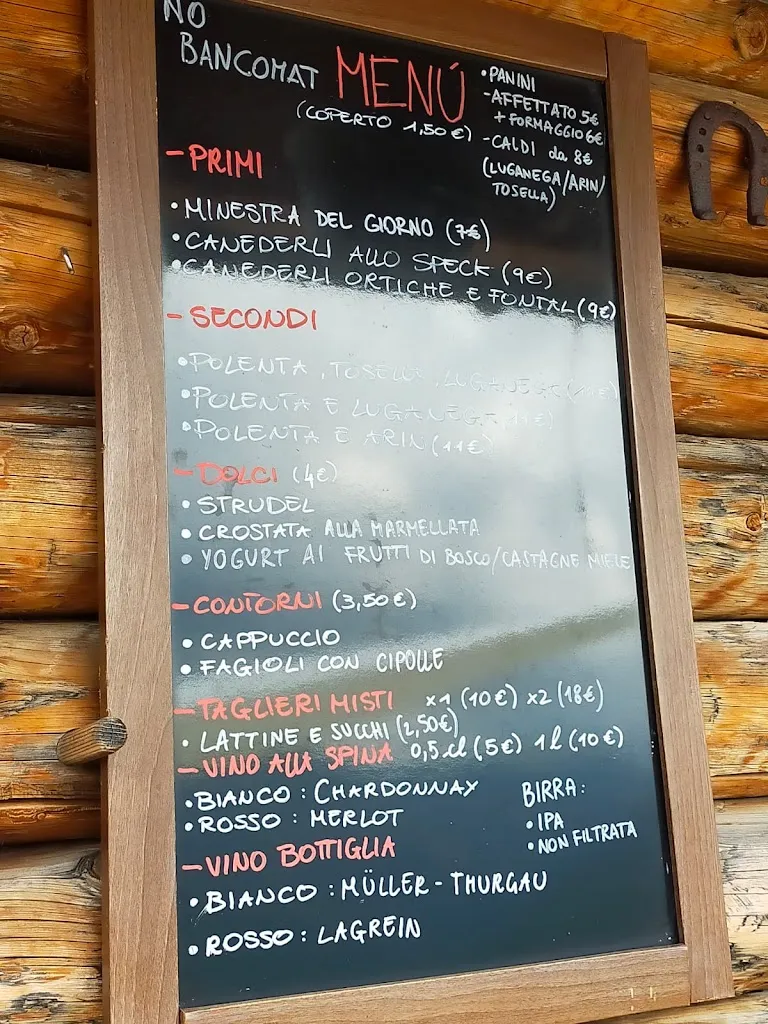 NO
BANCOMAT
MENÚ
(COPERTO 1,50€)
• PANINI
- AFFETTATO 5€
+ FORMAGGIO 6€
- CALDI da 8€
(LUGANEGA/ARIN/
TOSELLA)
- PRIMI
• MINESTRA DEL GIORNO (7€)
• CANEDERLI ALLO SPECK (9€)
• CANEDERLI ORTICHE E FONTAL (9€)
- SECONDI
• POLENTA, TOSELLA, LUGANEGA
• POLENTA E LUGANEGA (11€)
• POLENTA E ARIN (11€)
- DOLCI (4€)
• STRUDEL
• CROSTATA ALLA MARMELLATA
• YOGURT AI FRUTTI DI BOSCO/CASTAGNE MIELE
- CONTORNI (3,50€)
• CAPPUCCIO
• FAGIOLI CON CIPOLLE
- TAGLIERI MISTI x1 (10€) x2 (18€)
• LATTINE E SUCCHI (2,50€)
- VINO ALLA SPINA 0,5 cl (5€) 1 l (10€)
• BIANCO : CHARDONNAY
• ROSSO : MERLOT
BIRRA:
• IPA
• NON FILTRATA
- VINO BOTTIGLIA
• BIANCO : MÜLLER - THURGAU
• ROSSO : LAGREIN